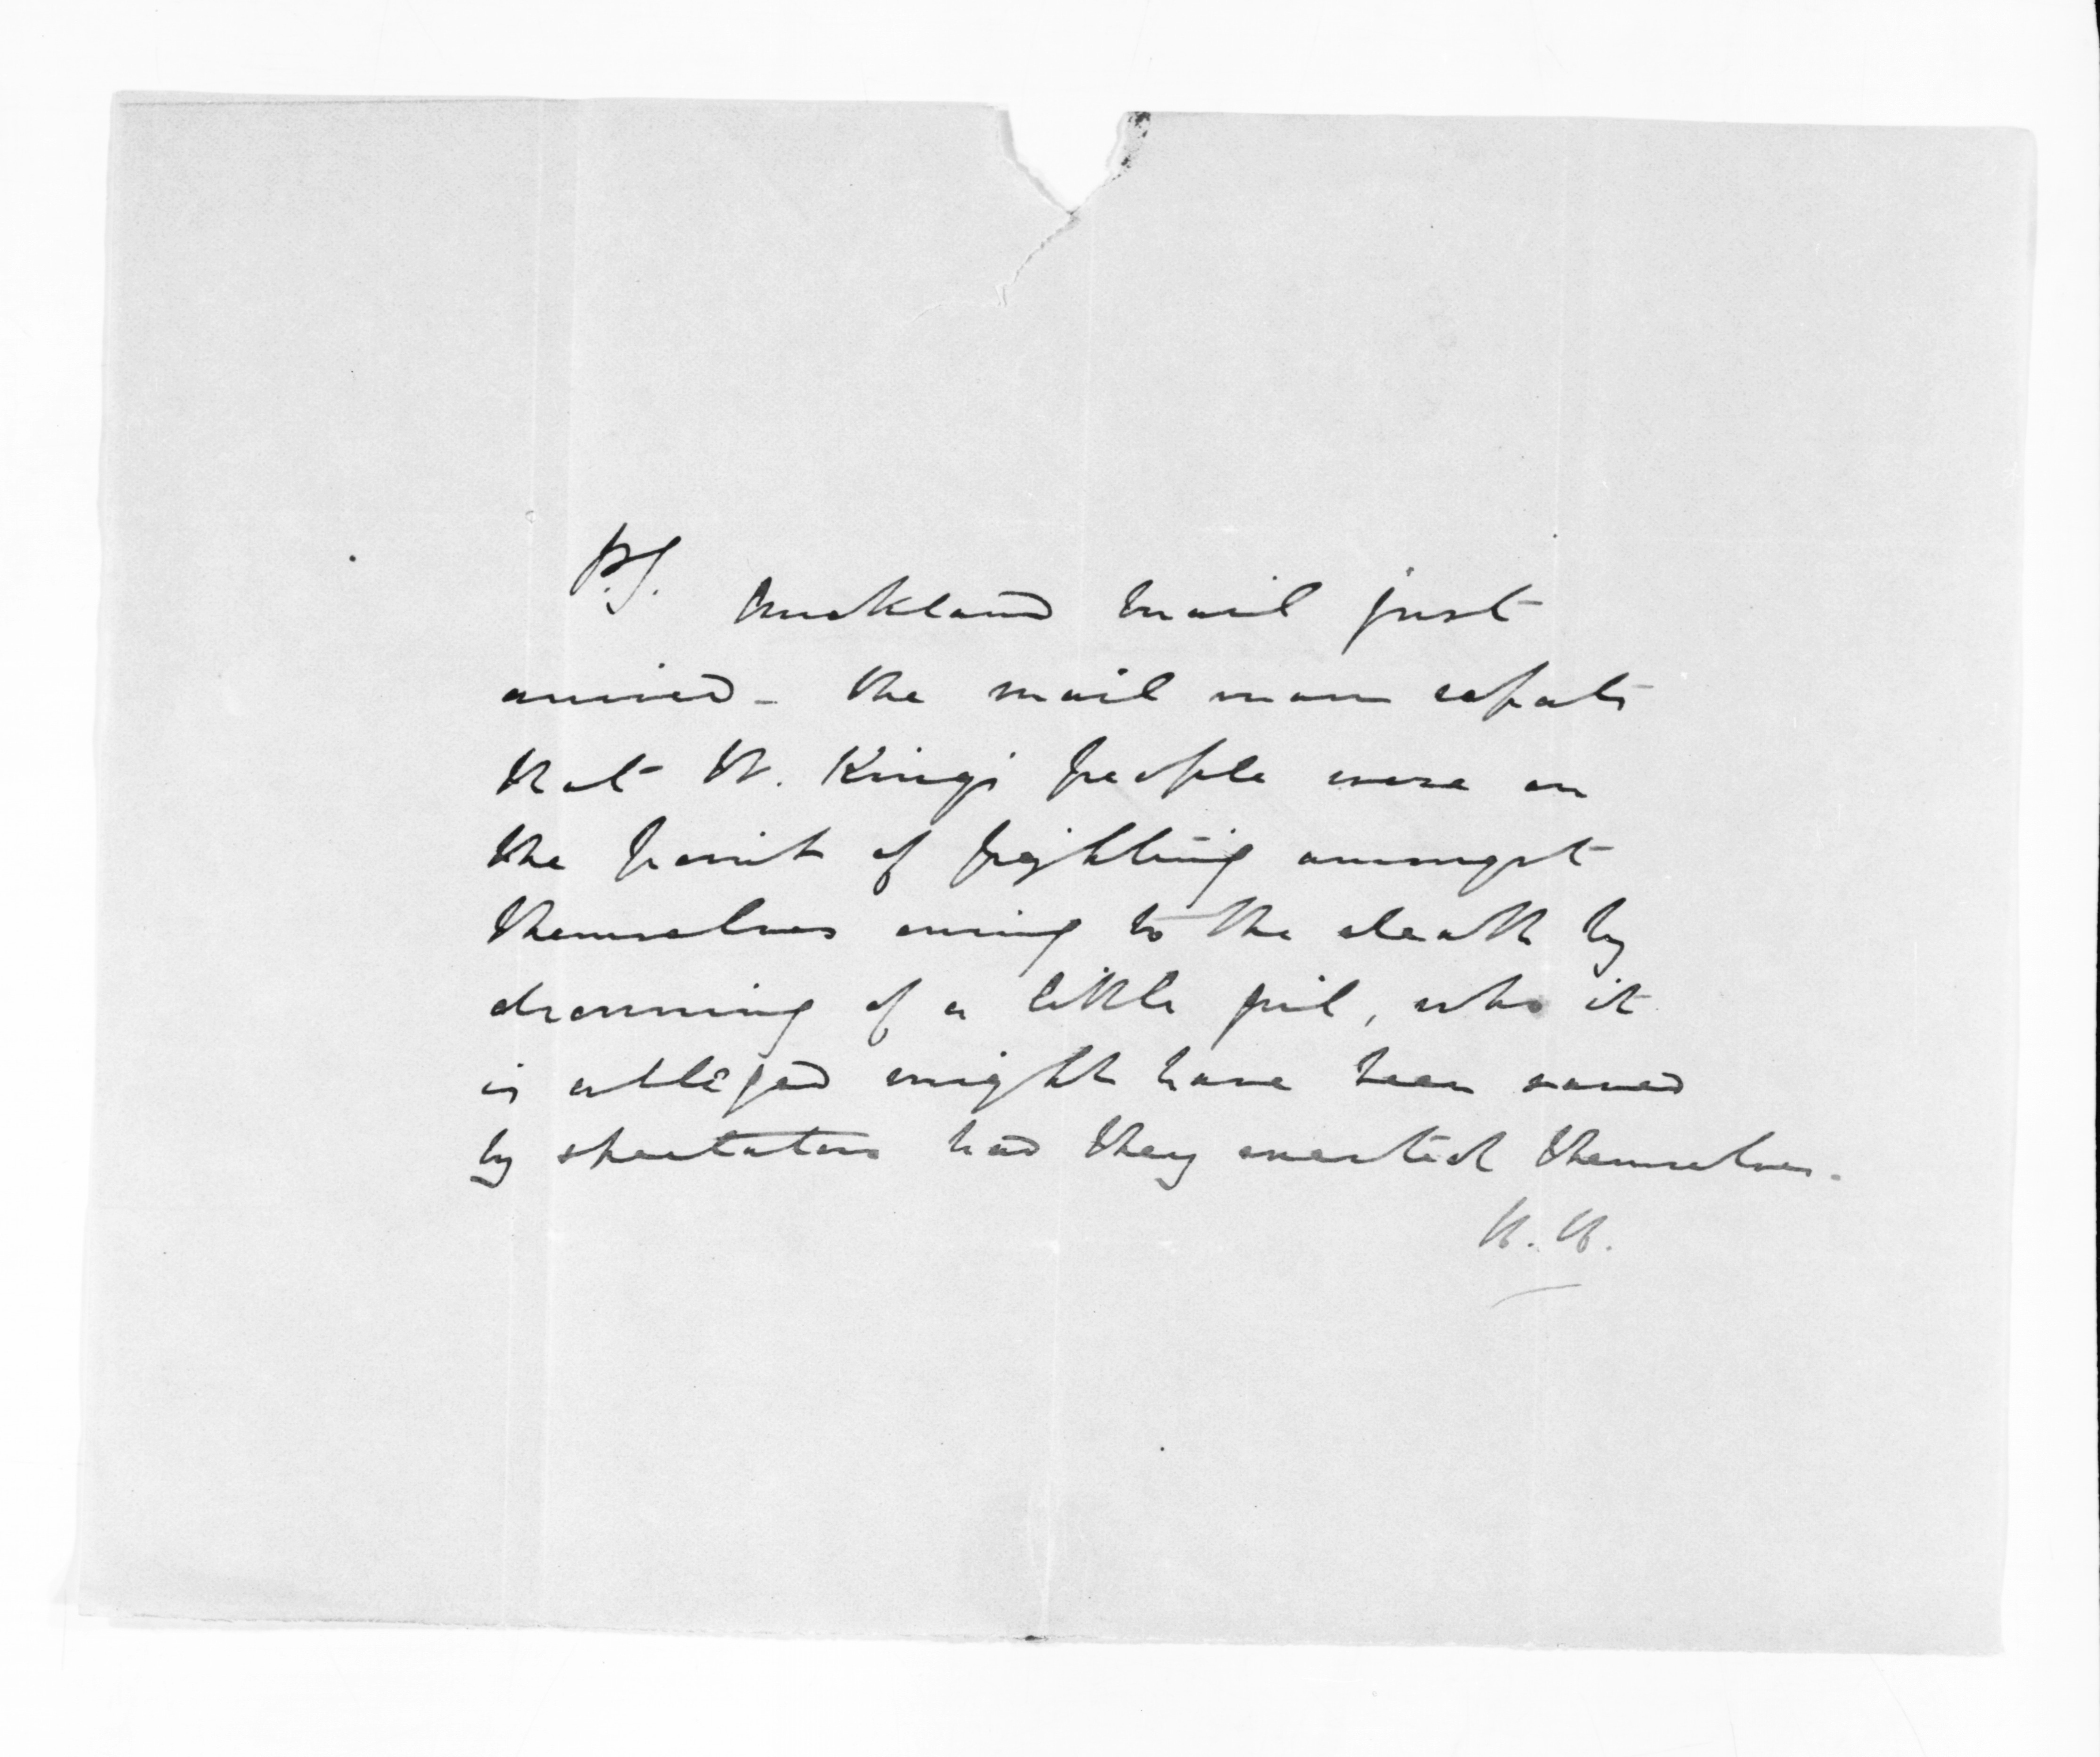 P.S. Auckland Mail just
arrived - the mail man reports
that W. Kings people were on
the point of fighting amongst
themselves owing to the death by
drowning of a little girl, who it
is alleged might have been saved
by spectators had they exerted themselves.